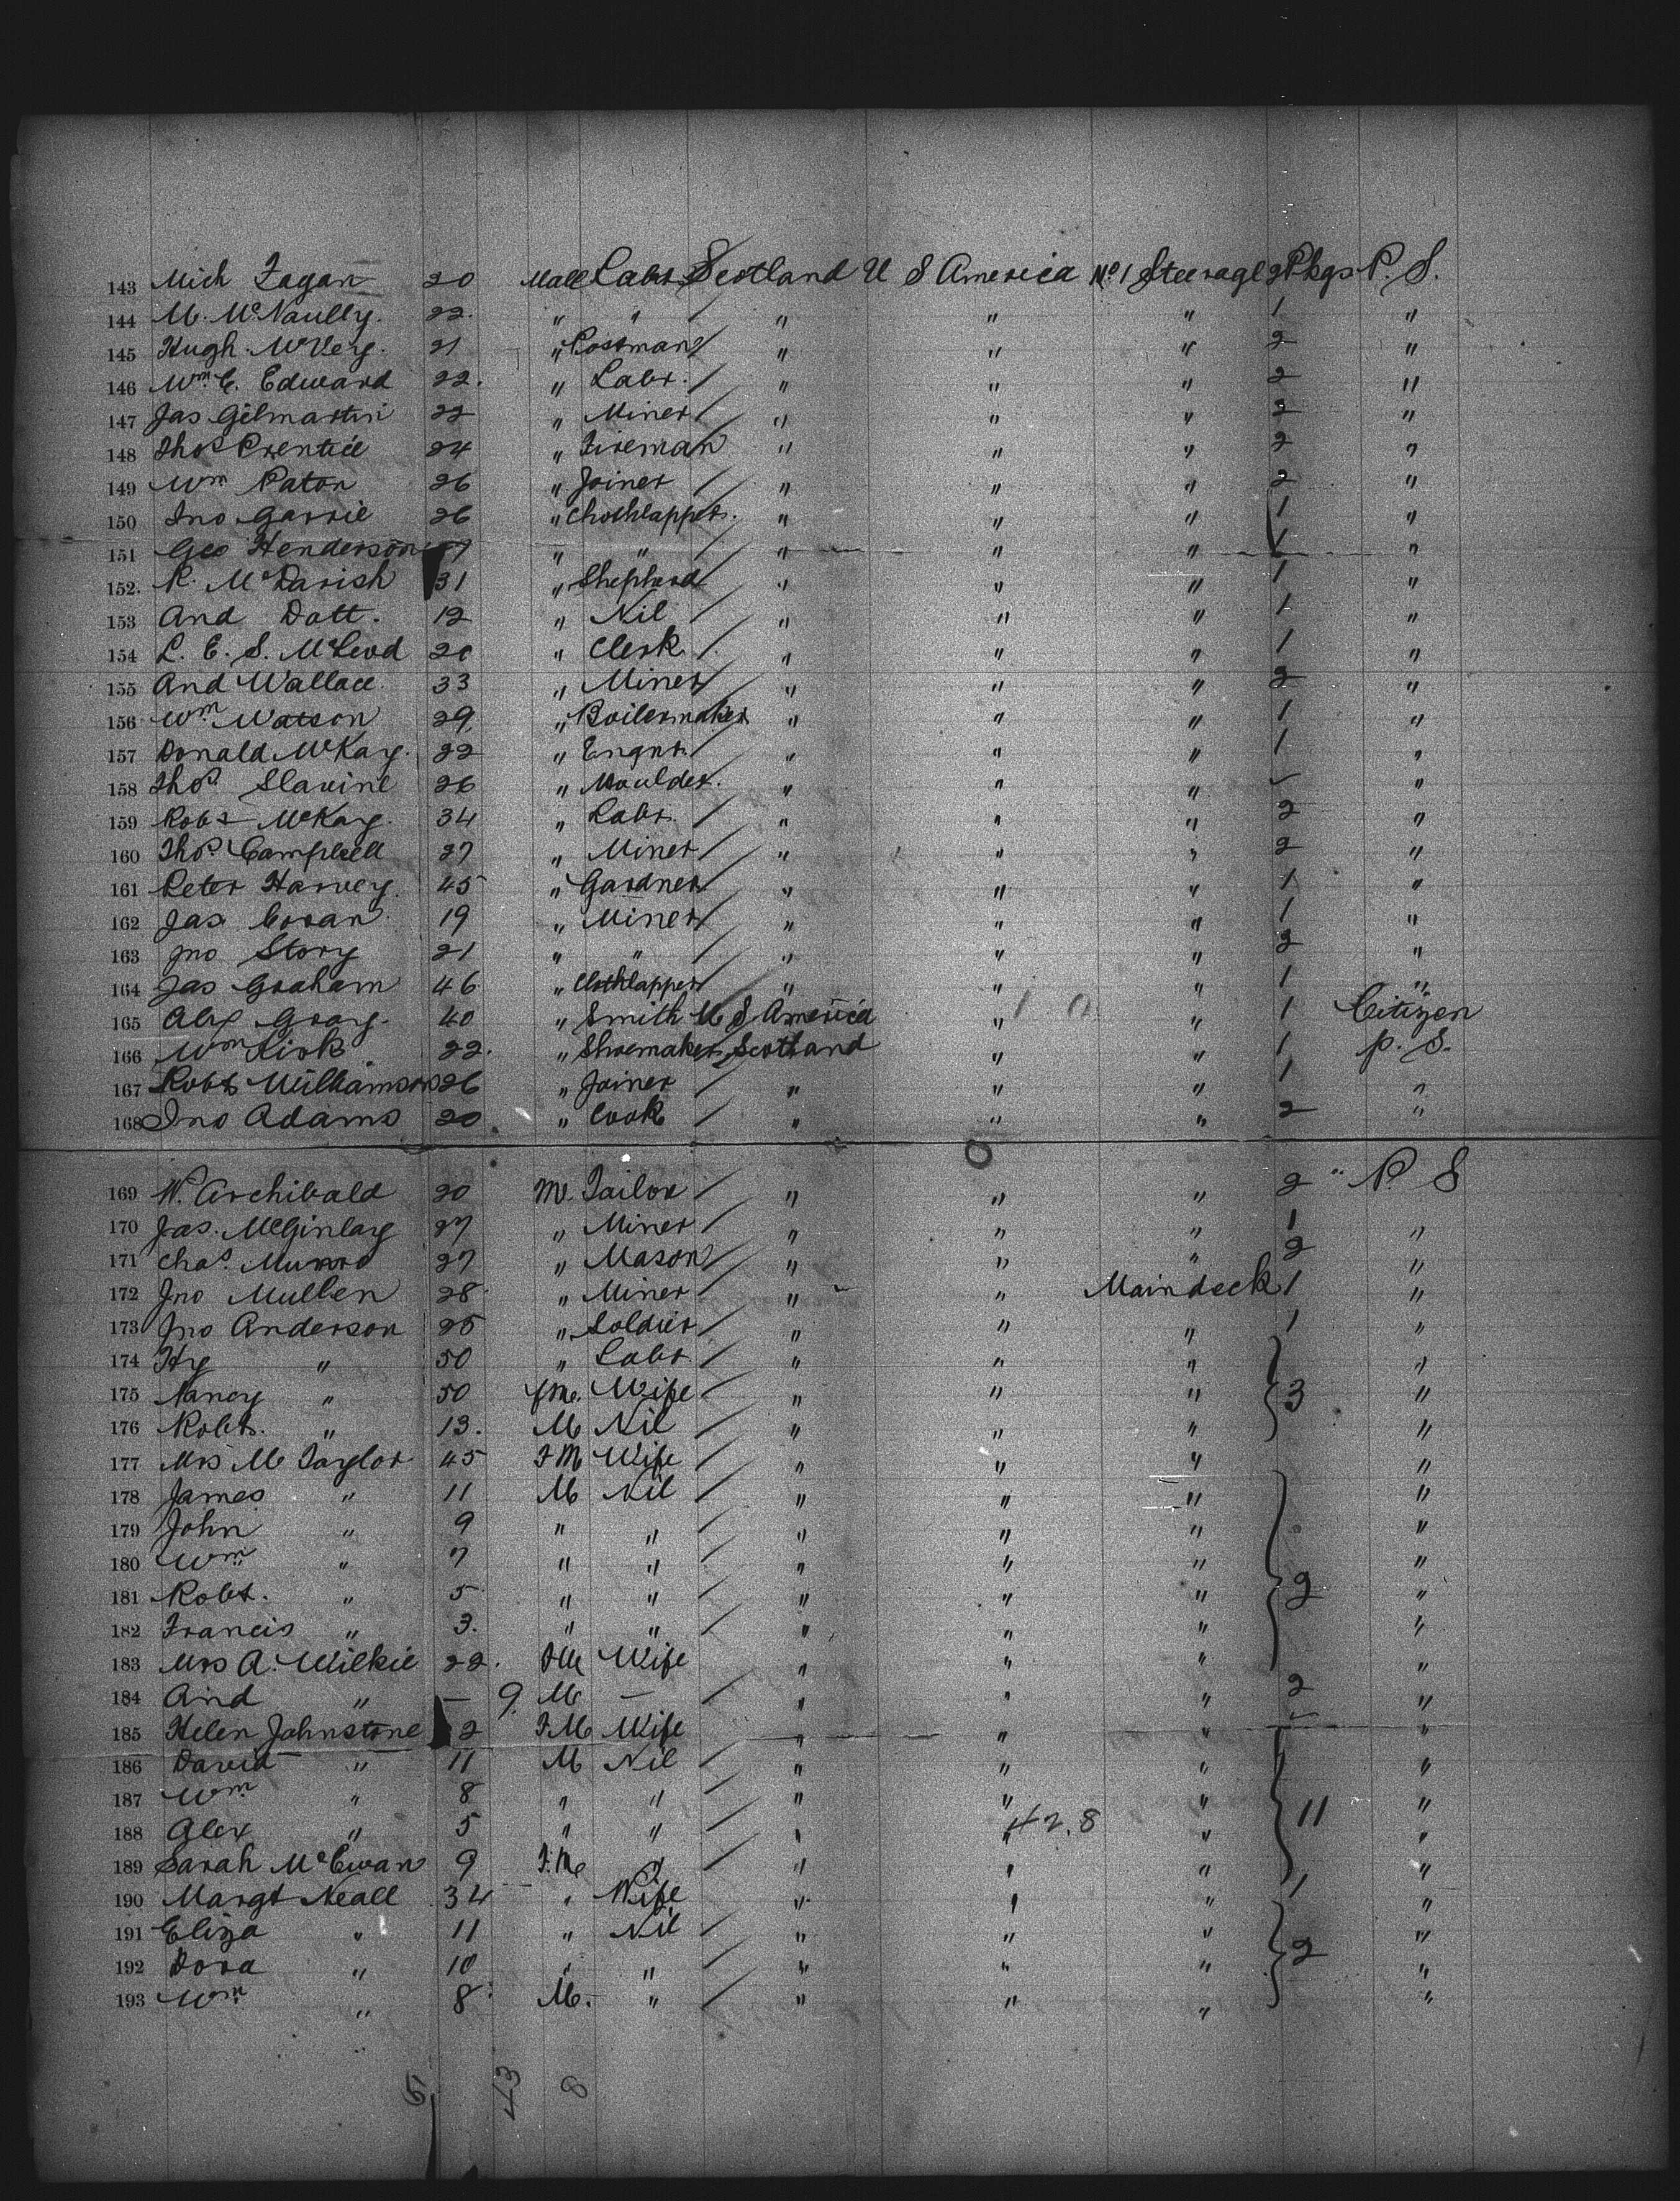 143 Mich Fagan 20 Male Labr Scotland U S America No 1 Steerage 2 Pkgs P. S.
144 M. McNaully. 22. " " " " " 1 "
145 Hugh McVey. 21 " Postman " " " 2 "
146 Wm C. Edward 22. " Labr. " " " 2 "
147 Jas Gilmartin 22 " Miner " " " 2 "
148 Thos Prentice 24 " Fireman " " " 2 "
149 Wm Paton 26 " Joiner " " " 2 "
150 Jno Garrie 26 " Clothlapper. " " " 1 "
151 Geo Henderson " " " " " 1 "
152. R. McDarish 31 " Shepherd " " " 1 "
153 And Dott. 12 " Nil " " " 1 "
154 L. E. S. McLeod 20 " Clerk " " " 1 "
155 And Wallace 33 " Miner " " " 2 "
156 Wm Watson 29. " Boilermaker " " " 1 "
157 Donald McKay. 22 " Engnr. " " " 1 "
158 Thos Slavine 26 " Moulder. " " " "
159 Robt McKay. 34 " Labr. " " " 2 "
160 Thos Campbell 27 " Miner " " " 2 "
161 Peter Harvey. 45 " Gardner " " " 1 "
162 Jas Coran 19 " Miner " " " 1 "
163 Jno Story 21 " " " " " 2 "
164 Jas Graham 46 " Clothlapper " " " 1 "
165 Alex Gray. 40 " Smith U S America " " 1 Citizen
166 Wm Kirk 22. " Shoemaker Scotland " " 1 P. S.
167 Robt Williamson 26 " Joiner " " " 1 "
168 Jno Adams 20. " Cook " " " 2 "
169 W. Archibald 20 M. Tailor " " " 2 " P. S
170 Jas. McGinlay 27 " Miner " " " 1 "
171 Chas. Munro 27 " Mason " " " 2 "
172 Jno Mullen 28 " Miner " " Maindeck 1 "
173 Jno Anderson 25 " Soldier " " " 1 "
174 Hy " 50 " Labr. " " " "
175 Nancy " 50 fm. Wife " " " 3 "
176 Robt. " 13. M Nil " " " "
177 Mrs M Taylor 45 F M Wife " " " "
178 James " 11 M Nil " " " "
179 John " 9 " " " " " "
180 Wm " 7 " " " " " "
181 Robt. " 5 " " " " " 2 "
182 Francis " 3. " " " " " "
183 Mrs A. Wilkie 22. FM Wife " " " "
184 And " — 9. M — " " " 2 "
185 Helen Johnstone 2 F.M Wife " " " "
186 David " 11 M Nil " " " "
187 Wm " 8 " " " " " "
188 Alex " 5 " " " " 42.8 " 11 "
189 Sarah McEwan 9 F.M " " " " "
190 Margt Neall 34 " Wife " " " 1 "
191 Eliza " 11 " Nil " " " "
192 Dora " 10 " " " " " 2 "
193 Wm " 8 M. " " " " "
43 8